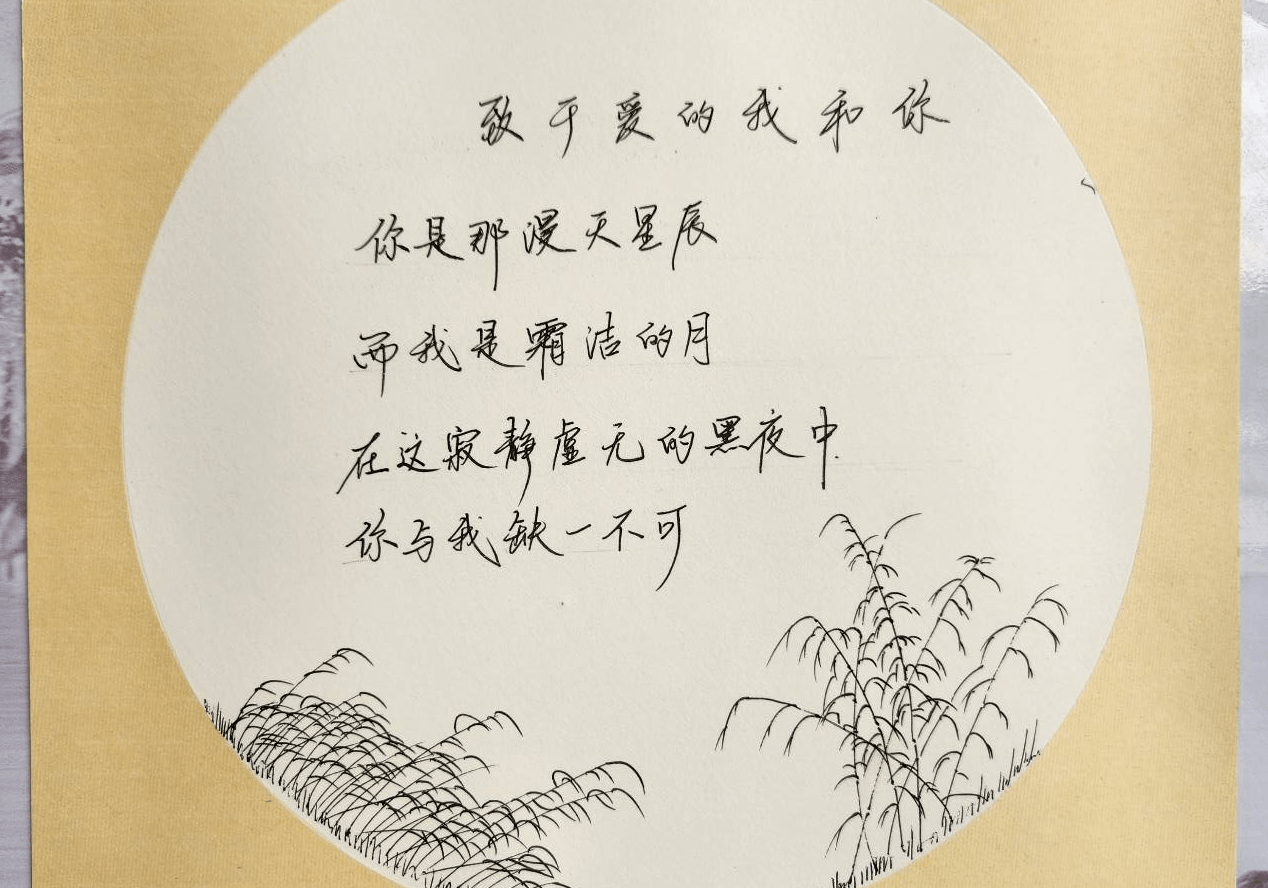 致于爱的我和你
你是那漫天星辰
而我是霜洁的月
在这寂静虚无的黑夜中
你与我缺一不可